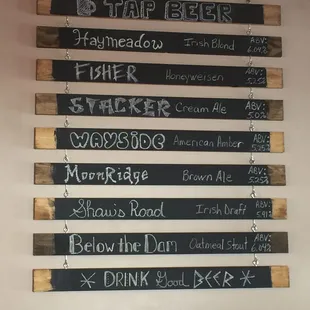 TAP BEER
Haymeadow Irish Blond ABV: 6.04%
FISHER Honeyweisen ABV: 5.25%
STACKER Cream Ale ABV: 5.0%
WAYSIDE American Amber ABV: 5.25%
MoonRidge Brown Ale ABV: 5.25%
Shaw's Road Irish Draft ABV: 5.91%
Below the Dam Oatmeal Stout ABV: 6.04%
* DRINK Good BEER *